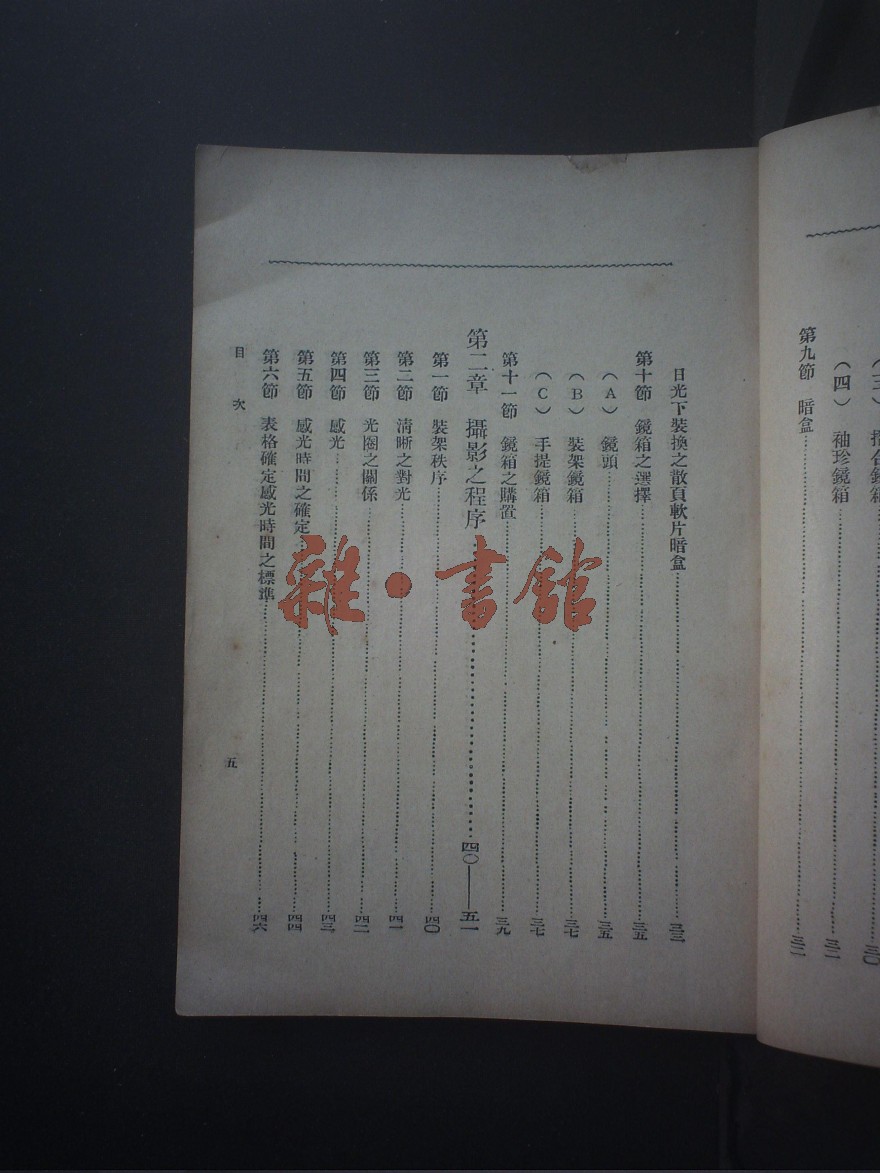 (三) 摺合鏡箱 三〇
(四) 袖珍鏡箱 三二
第九節 暗盒 三二
日光下裝換之散頁軟片暗盒 三三
第十節 鏡箱之選擇 三五
(A) 鏡頭 三五
(B) 裝架鏡箱 三七
(C) 手提鏡箱 三七
第十一節 鏡箱之購置 三九
第二章 攝影之程序 四〇——五一
第一節 裝架秩序 四〇
第二節 清晰之對光 四一
第三節 光圈之關係 四二
第四節 感光 四三
第五節 感光時間之確定 四四
第六節 表格確定感光時間之標準 四六
目次 五
雜·書館